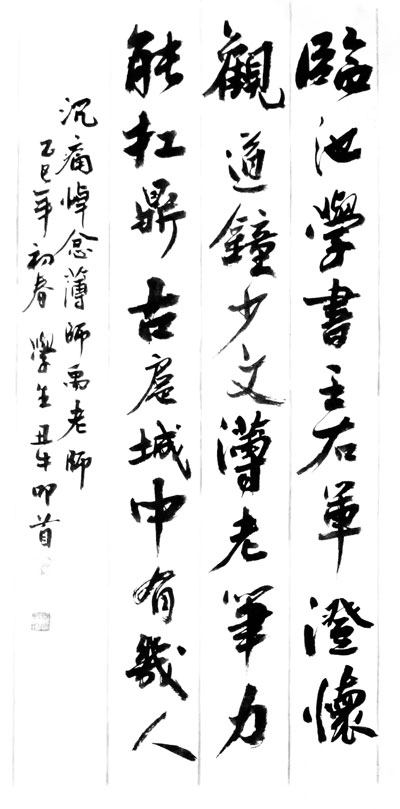 臨池學書王右軍澄懷
觀道鐘少文薄老筆力
能扛鼎古扈城中有幾人
沉痛悼念薄師禹老師
乙巳年初春學生丑牛叩首